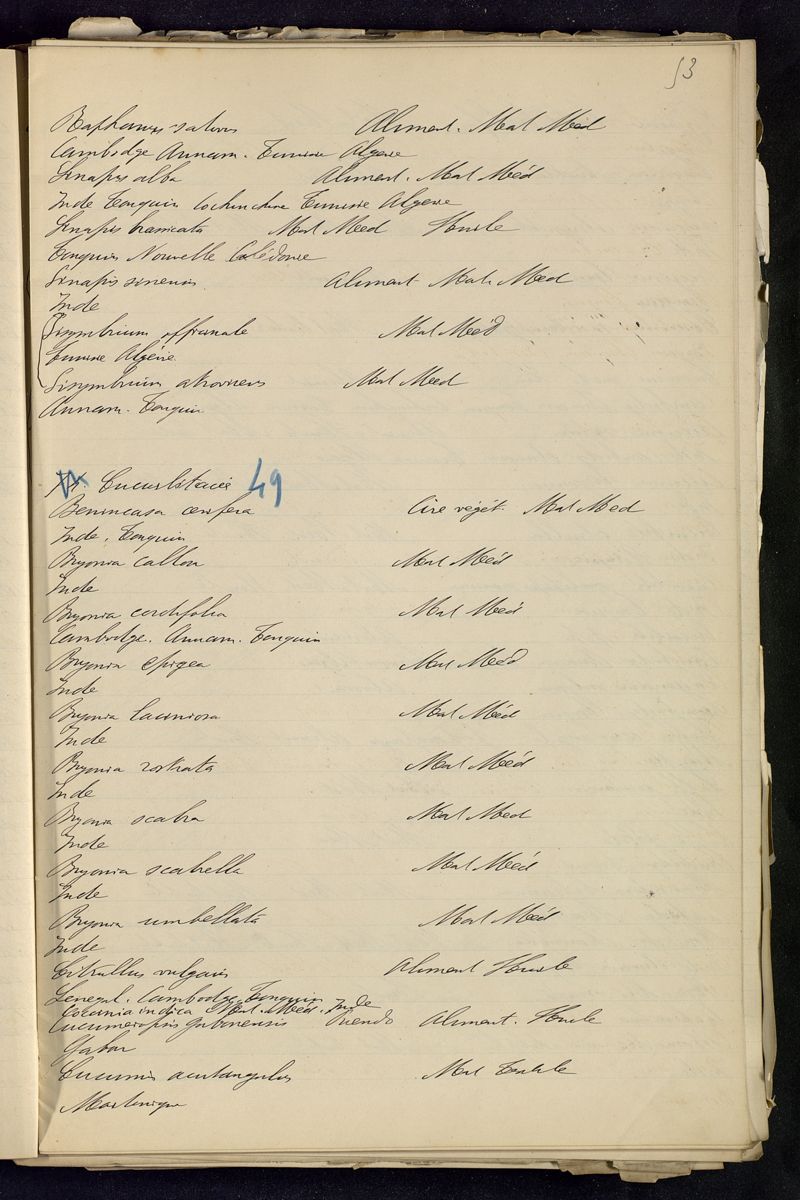 53
Raphanus sativus Aliment. Mat Méd
Cambodge Annam. Tunisie Algerie
Sinapis alba Aliment. Mat Méd
Inde Tonquin Cochinchine Tunisie Algerie
Sinapis brassicata Mat Méd Huile
Tonquin Nouvelle Calédonie
Sinapis sinensis. Aliment Mat. Med
Inde
Sisymbrium officinale Mat Méd
Tunisie Algérie
Sisymbrium atrovirens Mat Med
Annam. Tonquin
Cucurbitacée 49
Benincasa cerifera Cire végét. Mat Med
Inde. Tonquin
Bryonia callosa Mat Méd
Inde
Bryonia cordifolia Mat Méd
Cambodge. Annam. Tonquin
Bryonia epigea Mat Méd
Inde
Bryonia laciniosa Mat Méd
Inde
Bryonia rostrata Mat Méd
Inde
Bryonia scabra Mat Med
Inde
Bryonia scabrella Mat Méd
Inde
Bryonia umbellata Mat Méd
Inde
Citrullus vulgaris Aliment Huile
Senegal. Cambodge Tonquin
Coccinia indica Mat. Méd. Inde
Cucumeropsis gabonensis Aliment. Huile
Gabon
Cucumis acutangulus Mat Textile
Martinique